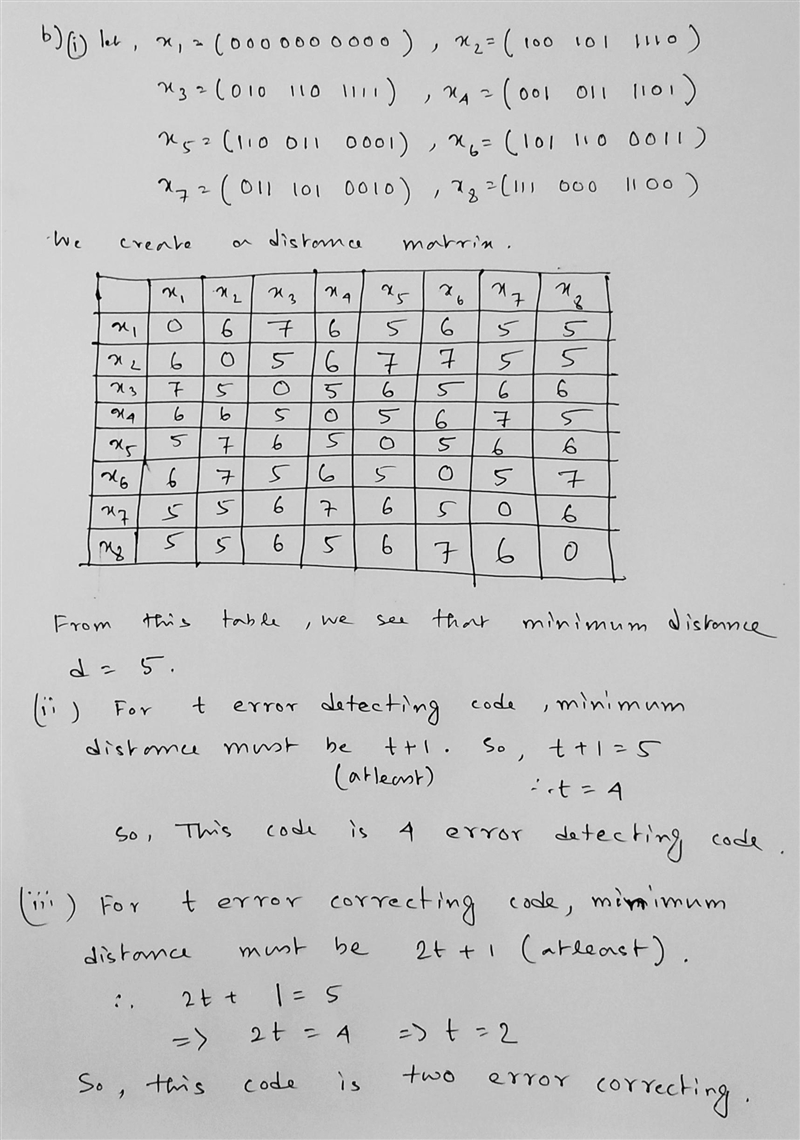 b) (i) let, x₁ = (000 000 0000), x₂ = (100 101 1110)
x₃ = (010 110 1111), x₄ = (001 011 1101)
x₅ = (110 011 0001), x₆ = (101 110 0011)
x₇ = (011 101 0010), x₈ = (111 000 1100)
We create a distance matrix.
x₁ x₂ x₃ x₄ x₅ x₆ x₇ x₈
x₁ 0 6 7 6 5 6 5 5
x₂ 6 0 5 6 7 7 5 5
x₃ 7 5 0 5 6 5 6 6
x₄ 6 6 5 0 5 6 7 5
x₅ 5 7 6 5 0 5 6 6
x₆ 6 7 5 6 5 0 5 7
x₇ 5 5 6 7 6 5 0 6
x₈ 5 5 6 5 6 7 6 0
From this table, we see that minimum distance
d = 5.
(ii) For t error detecting code, minimum
distance must be t+1. So, t+1 = 5
(atleast) ∴ t = 4
So, This code is 4 error detecting code.
(iii) For t error correcting code, minimum
distance must be 2t + 1 (atleast).
∴ 2t + 1 = 5
=> 2t = 4 => t = 2
So, this code is two error correcting.